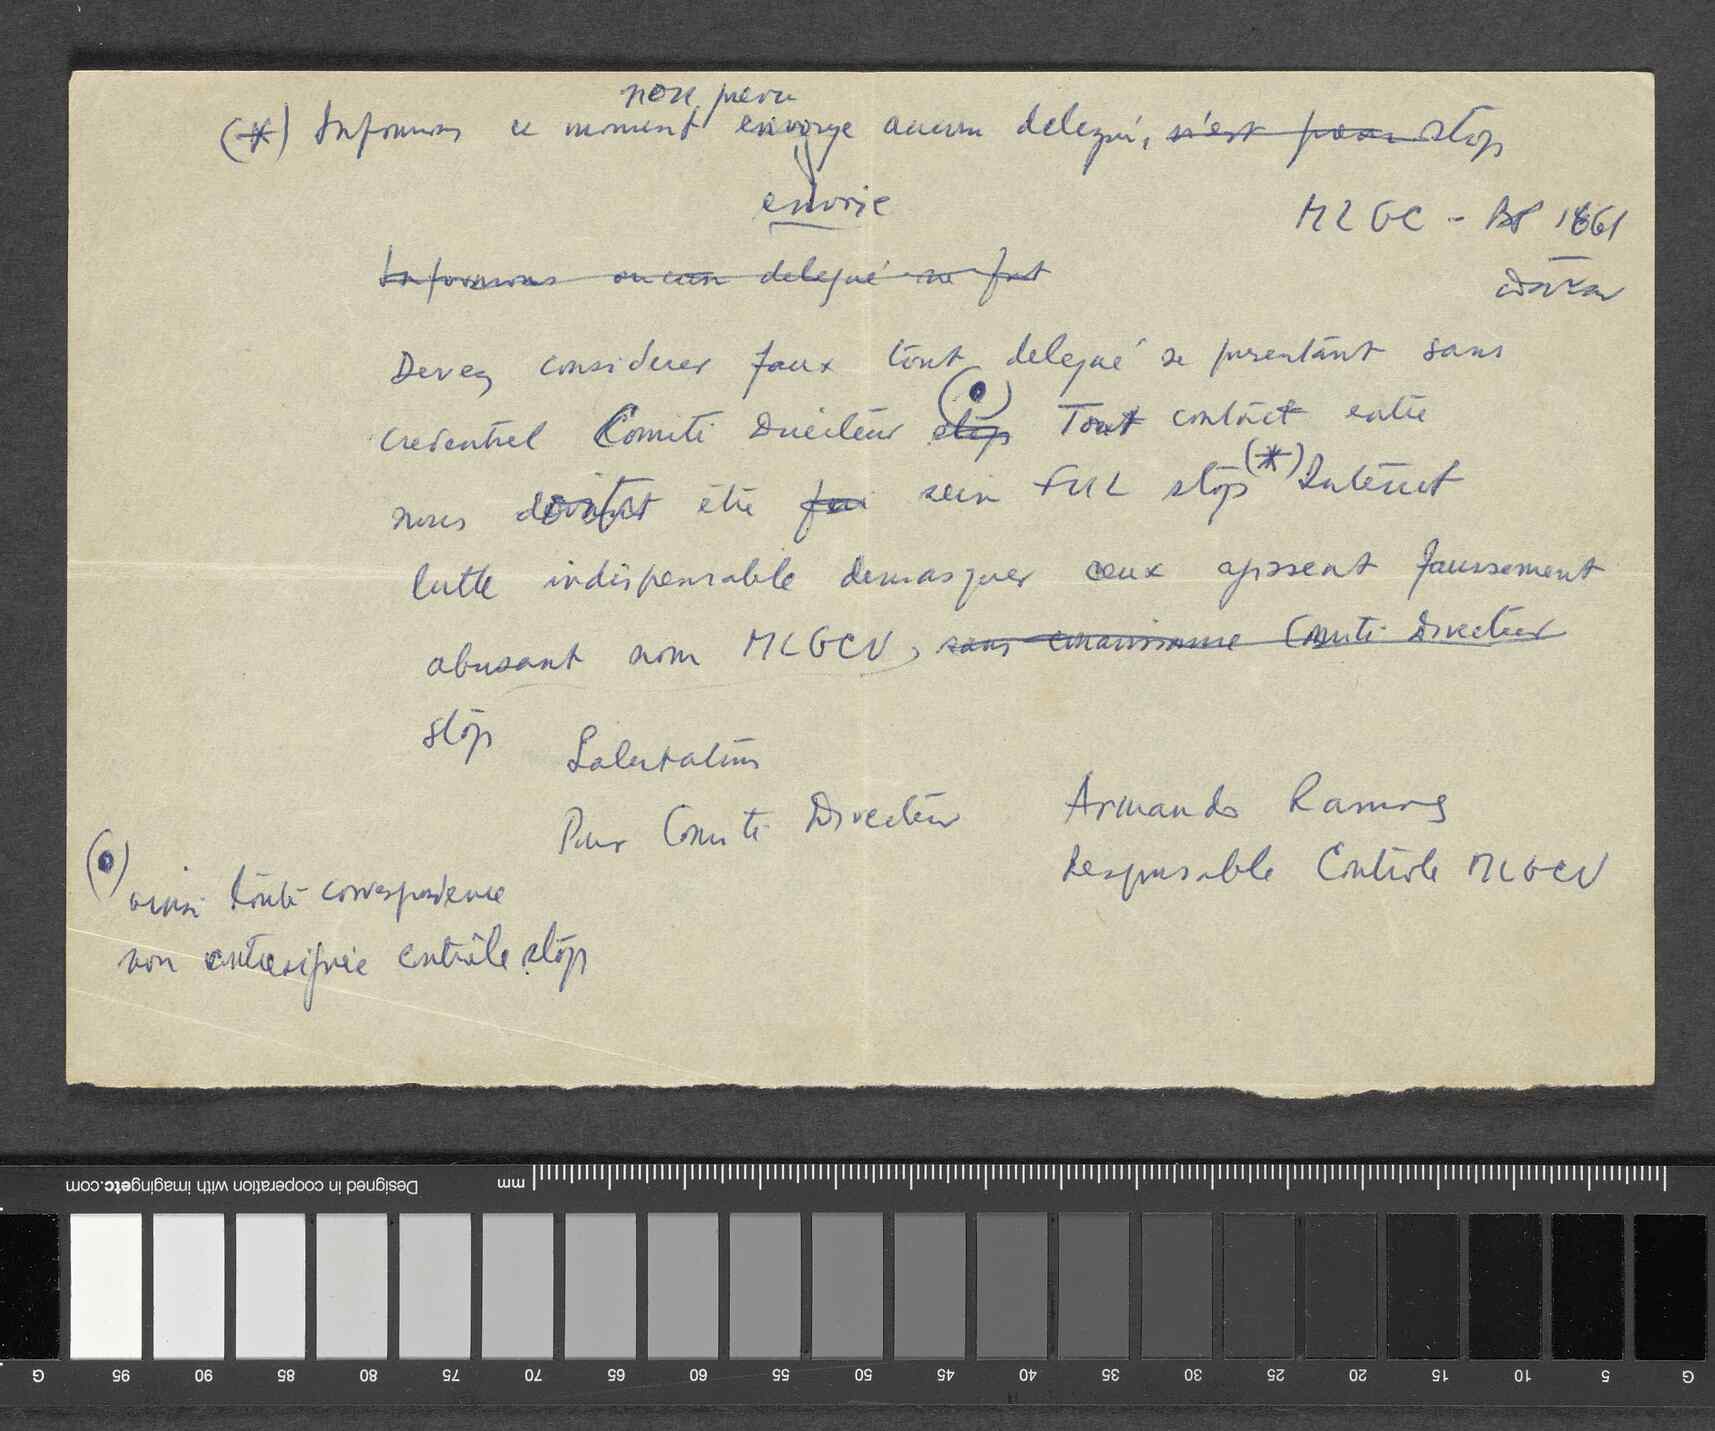 non prevu
(*) Informons ce moment envoye aucun delegué, n'est pour stop
envoie
MLGC - BP 1861
Dakar
Informons aucun delegué ne fut
Devez considerer faux tout delegué se presentant sans
credentiel Comité Directeur stop (o) Tout contact entre
nous devant être fai sein FUL stop (*) Interet
lutte indispensable demasquer ceux agissent faussement
abusant nom MLGCV, sans connaissance Comité Directeur
stop
Salutations
Pour Comité Directeur
Armando Ramos
Responsable Contrôle MLGCV
(o)
ainsi toute correspondence
non contresignée contrôle stop
Designed in cooperation with imagingetc.com
mm
G 95 90 85 80 75 70 65 60 55 50 45 40 35 30 25 20 15 10 5 G